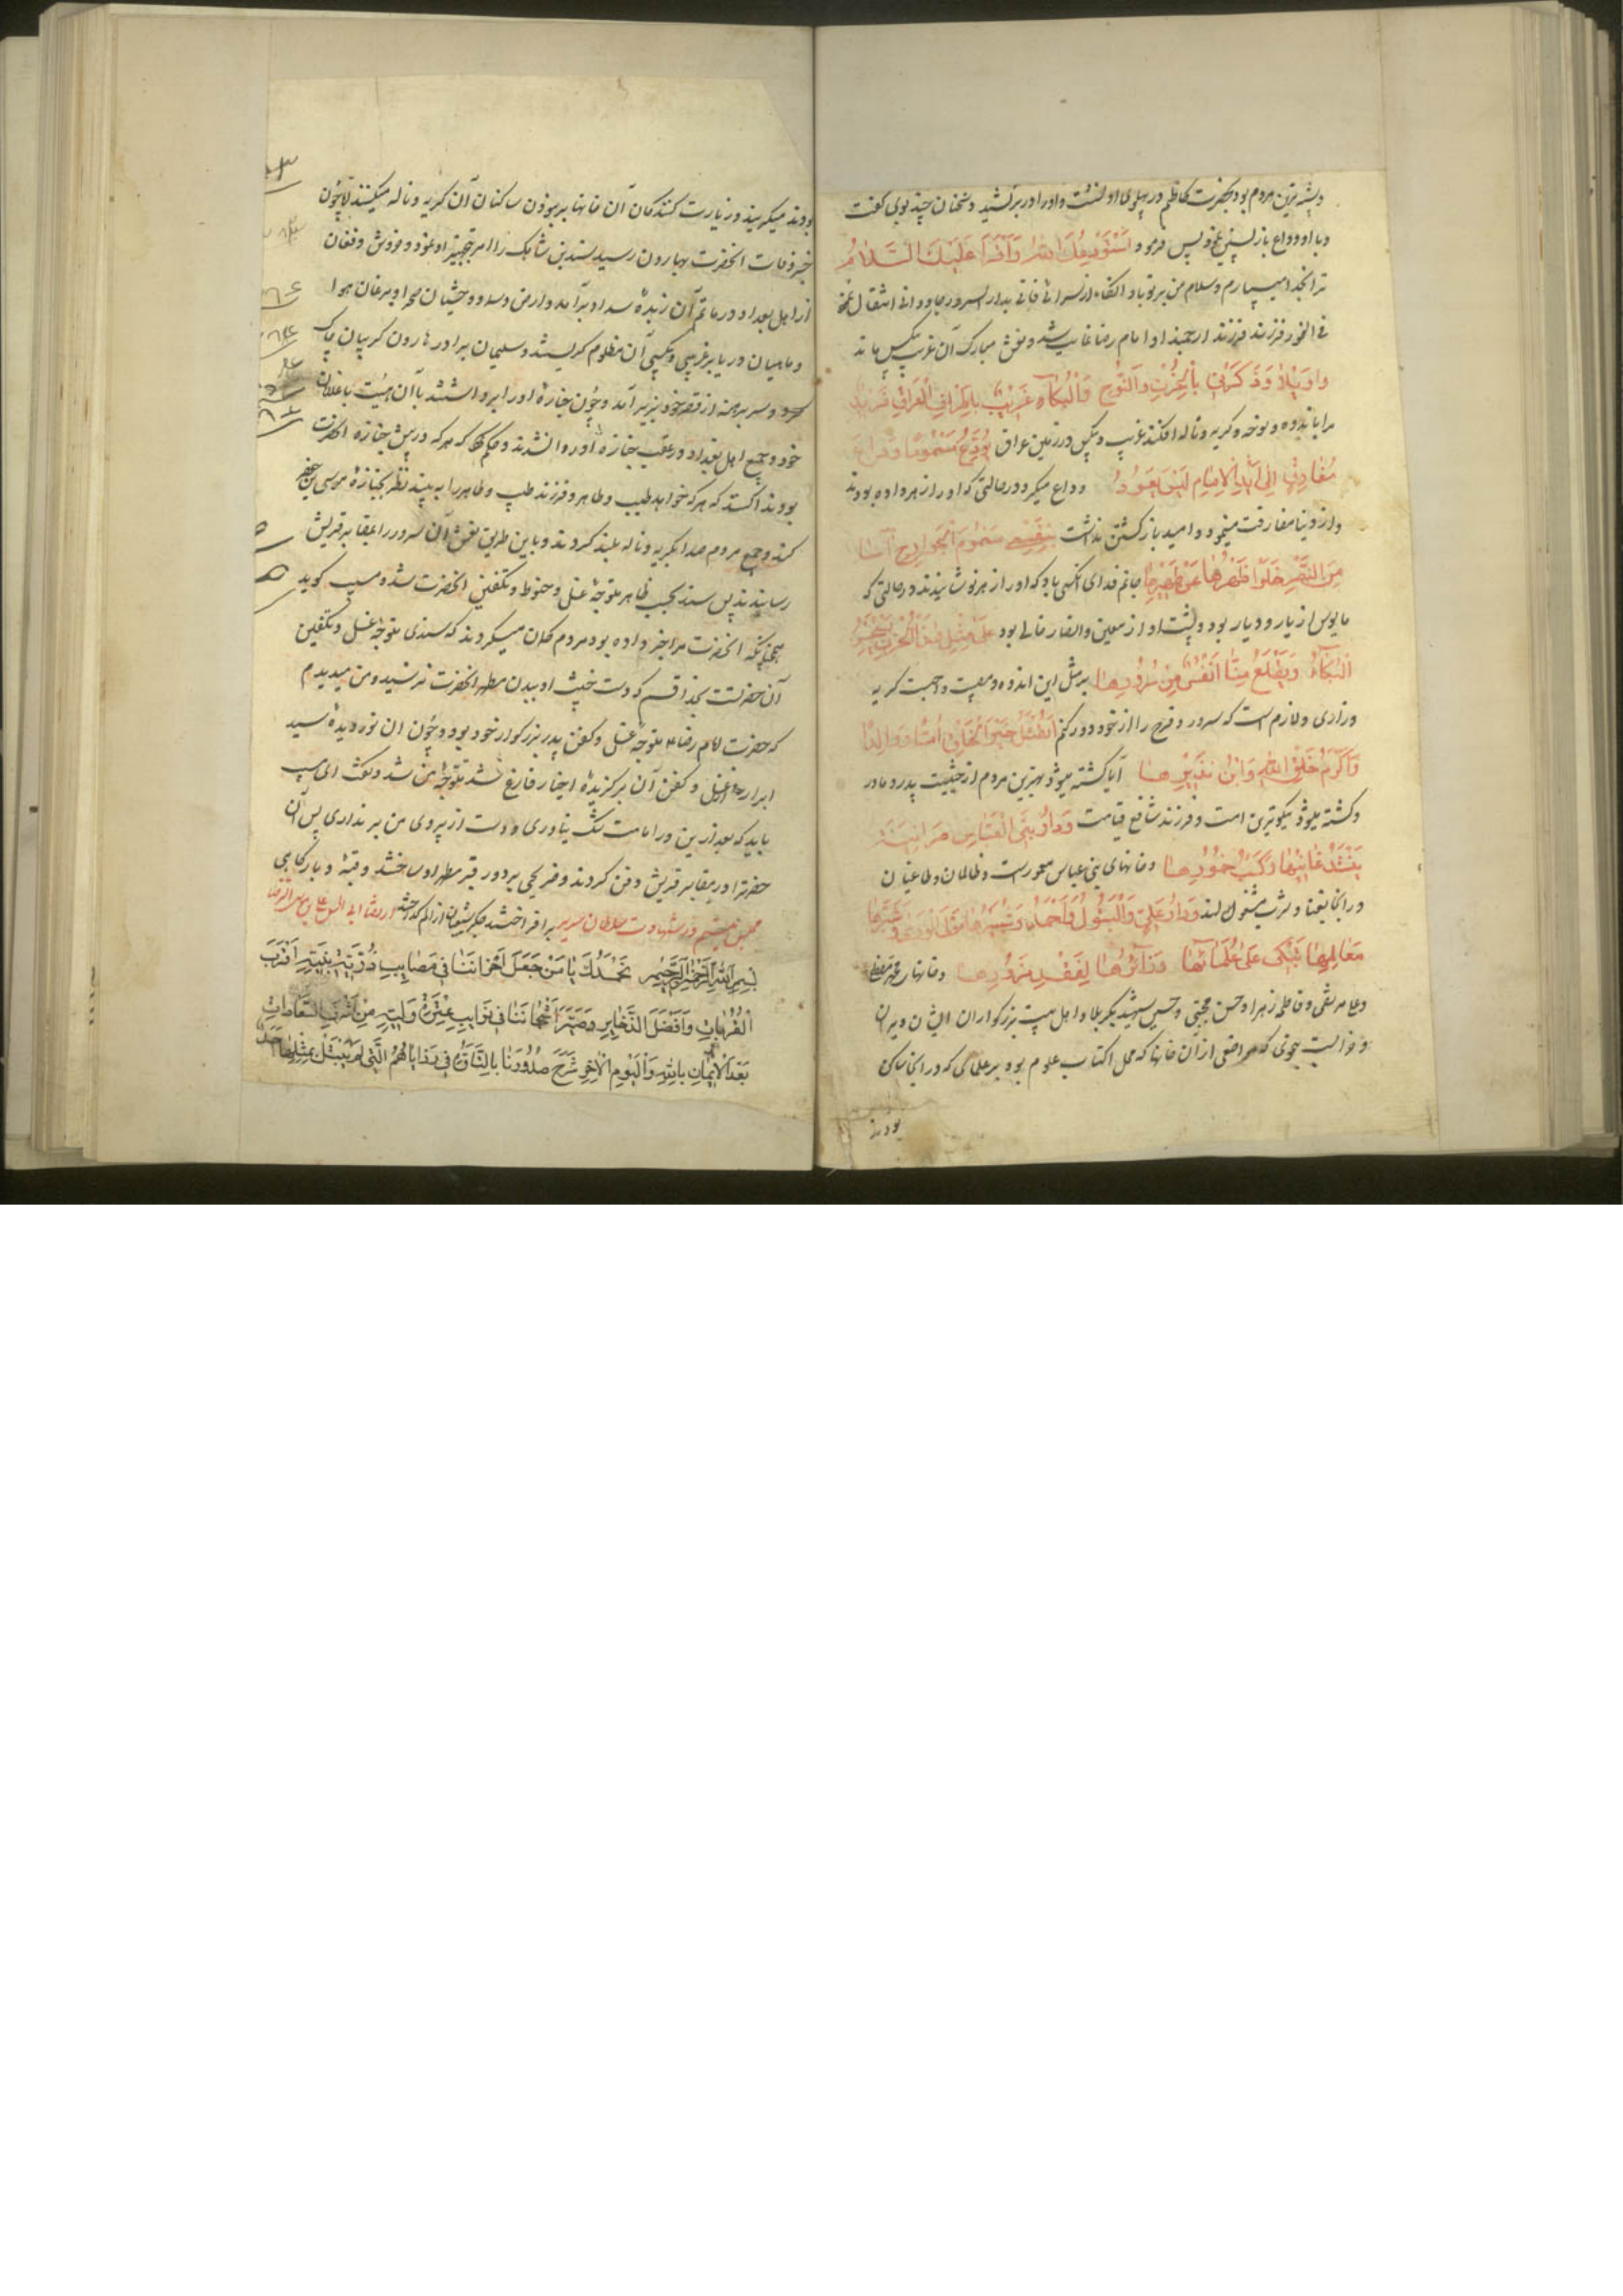 و شبیه ترین مردم بود بحضرت کاظم در پهلوی او نشست و او را در بر کشید و سخنان چند بوی گفت
و با او وداع بازپسین نمود پس فرمود استودعک الله و اقرأ علیک السلام
ترا بخدا میسپارم و سلام من بر تو باد از سرای فانی بدار السرور جاودانی انتقال نمود
فی الفور فرزند ارجمند او امام رضا غایب شد و نعش مبارک آن غریب بیکس ماند
واویلاه وذکرنی بالحزن والنوح والبکاء غریب باطراف العراق فرید
مرا باندوه و نوحه و گریه و ناله افکند غریب و بیکس در زمین عراق یودع مسموما وداع
مفارق الی ابد الایام لیس یعود وداع میکرد در حالتی که او را زهر داده بودند
و از دنیا مفارقت مینمود و امید بازگشتن نداشت بنفسی مسموم الجوارح آیسا
من النصر خلوا ظهرها عن ظهیرها جانم فدای آنکسی باد که او را زهر نوشانیدند در حالتی که
مایوس از یار و دیار بود و پشت او از معین و انصار خالی بود علی مثل هذا الحزن یستحسن
البکاء ویقلع منا انفس من سرورها بر مثل این اندوه و مصیبت واجبست گریه
و زاری و لازم است که سرور و فرح را از خود دور کنم ایقتل خیر الخلق اما ووالدا
واکرم خلق الله وابن نذیرها آیا کشته میشود بهترین مردم از حیثیت پدر و مادر
و کشته میشود نیکوترین امت و فرزند شافع قیامت ودار بنی العباس
و خانهای بنی عباس معمور است و ظالمان و طاغیان
در انجا بغنا و شرب مشغولند ودار علی والبتول واحمد وشبرها
معالمها تبکی علی علمائها وزائرها لفقد مزورها و خانهای محمد مصطفی
و علی مرتضی و فاطمه زهرا و حسن مجتبی و حسین شهید بکربلا و اهل بیت بزرگواران ایشان ویران
و خرابست بنحوی که مواضعی از آن خانها که محل اکتساب علوم بود بر علمائی که در انجا ساکن
بودند
بودند میگریند و زیارت کنندگان آن خانها بر نبودن ساکنان آن گریه و ناله میکنند لا چون
خبر وفات انحضرت بهارون رسید سندی بن شاهک را امر بتجهیز او نمود و خروش و فغان
از اهل بغداد در ماتم آن زبدهٔ برآمد و وحشیان صحرا و مرغان هوا
و ماهیان دریا بر غریبی و بیکسی آن مظلوم گریستند و سلیمان برادر هارون گریبان چاک
کرد و سر برهنه از قصر خود بزیر آمد و چون جنازهٔ او را برداشتند با آن هیئت با غلامان
خود و جمیع اهل بغداد در عقب جنازه او روان شدند و حکم کرد که هر که در پیش جنازه انحضرت
بودند که هر که خواهد طیب و طاهر و فرزند طیب و طاهر را به بیند نظر بجنازهٔ موسی بن جعفر
کند و جمیع مردم صدا بگریه و ناله بلند کردند و باین طریق نعش آن سرور را بمقابر قریش
رسانیدند پس سندی بحسب ظاهر متوجه غسل و حنوط و تکفین انحضرت شد و مسیب گوید
همچنانکه انحضرت مرا خبر داده بود مردم گمان میکردند که سندی متوجه غسل و تکفین
آن حضرتست بخدا قسم که دست خبیث او ببدن مطهر انحضرت نرسید و من میدیدم
که حضرت امام رضا ع متوجه غسل و کفن پدر بزرگوار خود بود و چون ان نور دیدهٔ سید
ابرار از غسل و کفن آن برگزیدهٔ اخیار فارغ شد متوجه من شد و گفت ای مسیب
باید که بعد از من در امامت شک نیاوری و دست از پیروی من بر نداری پس آن
حضرترا در مقابر قریش دفن کردند و ضریحی بر دور قبر مطهر او ساختند و قبهٔ و بارگاهی
بر افراختند مجلس هشتم در شهادت سلطان سریر ارتضا ابی الحسن علی بن موسی الرضا
بسم الله الرحمن الرحیم نحمدک یا من جعل احزاننا فی مصایب ذریة نبیه اقرب
القربات وافضل الذخایر وصیر اشجاننا فی نوایب عترة ولیه من اشرف السعادات
بعد الایمان بالله والیوم الاخر شرح صدورنا بالتاوه فی رزایاهم التی لم یبتل بمثلها احد